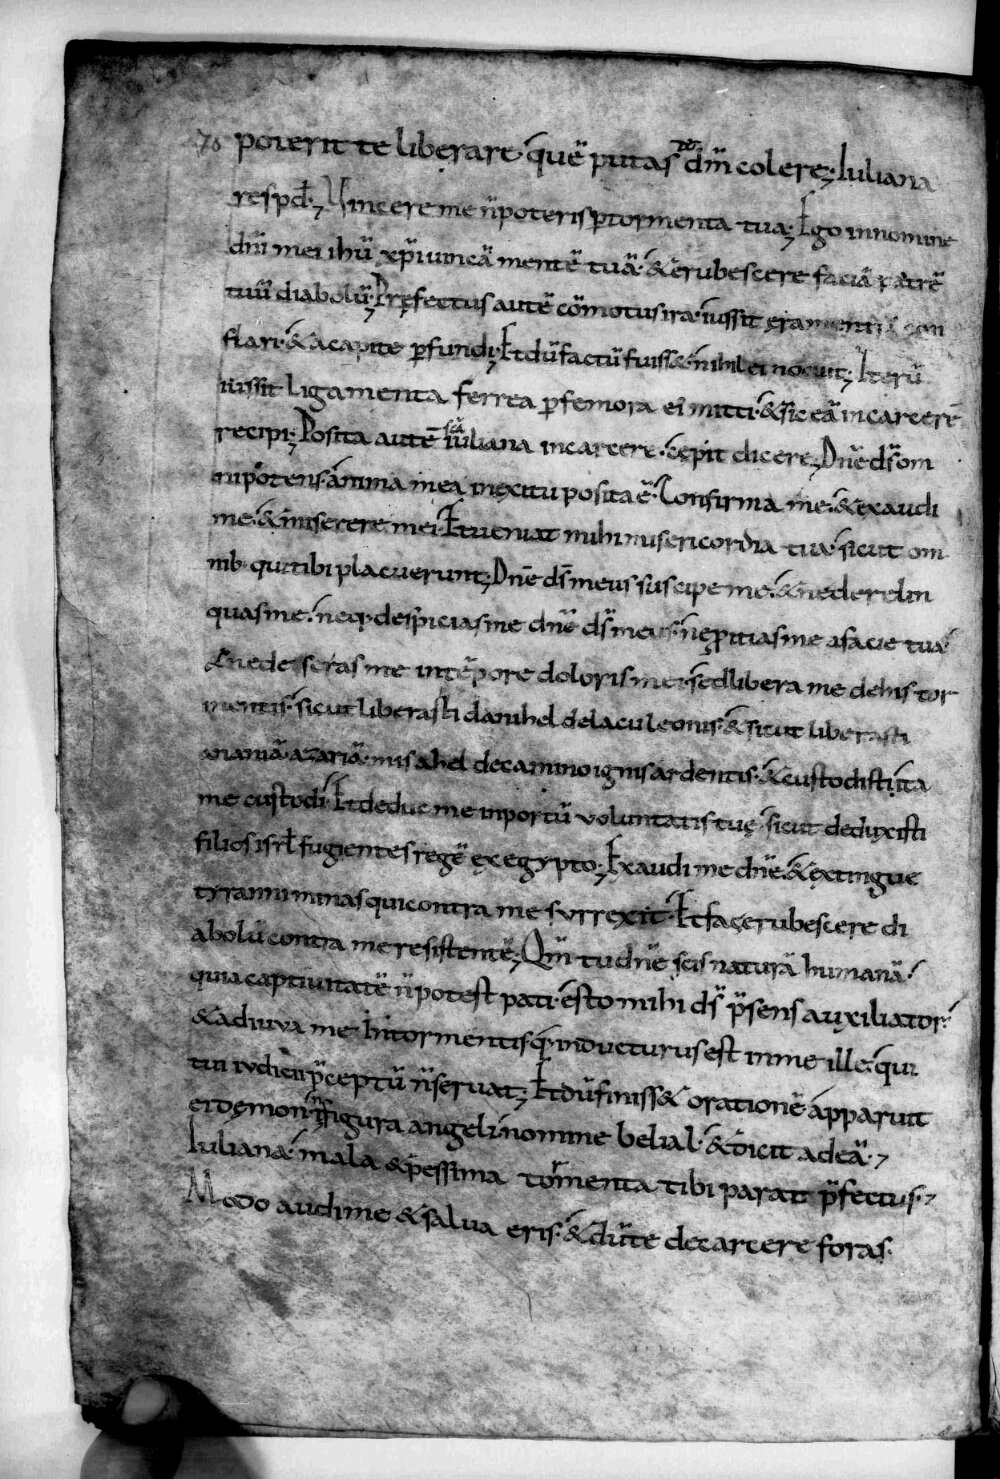 70 poterit te liberare quē putas dm̄ colere; Iuliana
respd̄; Vincere me n̄ poteris ꝑ tormenta tua; Ego in nomine
dn̄i mei ihū xp̄i vincā mentē tuā. & erubescere faciā patrē
tuū diabolū; Pręfectus autē cōmotus ira. iussit ęramentū con
flari. & a capite ꝑfundi; Et dū factū fuiss&. nihil ei nocuit; Iterū
iussit ligamenta ferrea ꝑ femora ei mitti. & sic eā in carcerē
recipi; Posita autē scā iuliana in carcere. cępit dicere; Dn̄e ds̄ om
nipotens. anima mea in exitu posita ē. Confirma me. & exaudi
me. & miserere mei. Et veniat mihi misericordia tua. sicut om
nib. qui tibi placuerunt; Dn̄e ds̄ meus suscipe me. & ne derelin
quas me. neq. despicias me dn̄e ds̄ meus. nę ꝓicias me a facie tua.
& ne deseras me in tēpore doloris mei. sed libera me de his tor
mentis. sicut liberasti danihel de lacu leonis. & sicut liberasti
ananiā. azariā. misahel de camino ignis ardentis. & custodisti. ita
me custodi. Et deduc me in portū voluntatis tuę. sicut deduxisti
filios isrł fugientes regē ex egypto; Exaudi me dn̄e. & extingue
tyranni minas qui contra me surrexit. Et fac erubescere di
abolū contra me resistentē; Qm̄ tu dn̄e scis naturā humanā.
quia captivitatē n̄ potest pati. esto mihi ds̄ p̄sens auxiliator.
& adiuva me in tormentis. q̄ inducturus est in me ille. qui
tui iudicii p̄ceptū n̄ servat; Et dū finiss& orationē apparuit
ei dęmon in figura angeli. nomine belial. & dicit ad eā.
Iuliana. mala & pessima tormenta tibi parat p̄fectus.
Modo audi me & salva eris. & dū te de carcere foras.